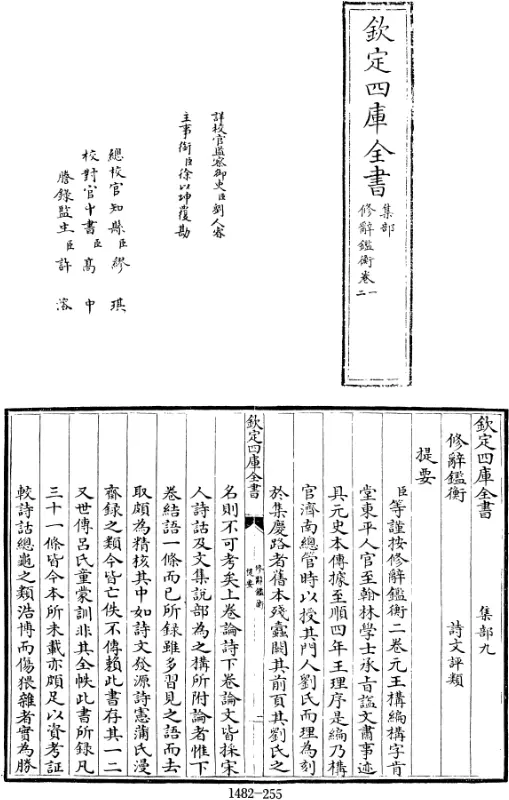 欽定四庫全書
集部
修辭鑑衡卷一
二
詳校官監察御史臣劉人睿
主事銜臣徐以坤覆勘
總校官知縣臣繆琪
校對官中書臣高中
謄錄監生臣許溶
欽定四庫全書　集部九
修辭鑑衡　詩文評類
提要
臣等謹按修辭鑑衡二卷元王構編構字肯
堂東平人官至翰林學士承旨諡文肅事迹
具元史本傳據至順四年王理序是編乃構
官濟南總管時以授其門人劉氏而理為刻
於集慶路者舊本殘蠹闕其前頁其劉氏之
欽定四庫全書
修辭鑑衡
提要
一
名則不可考矣上卷論詩下卷論文皆採宋
人詩話及文集說部為之構所附論者惟下
卷結語一條而已所録雖多習見之語而去
取頗為精核其中如詩文發源詩憲蒲氏漫
齋録之類今皆亡佚不傳賴此書存其一二
又世傳呂氏童蒙訓非其全帙此書所録凡
三十一條皆今本所未載亦頗足以資考証
較詩話總龜之類浩博而傷猥雜者實為勝
1482-255